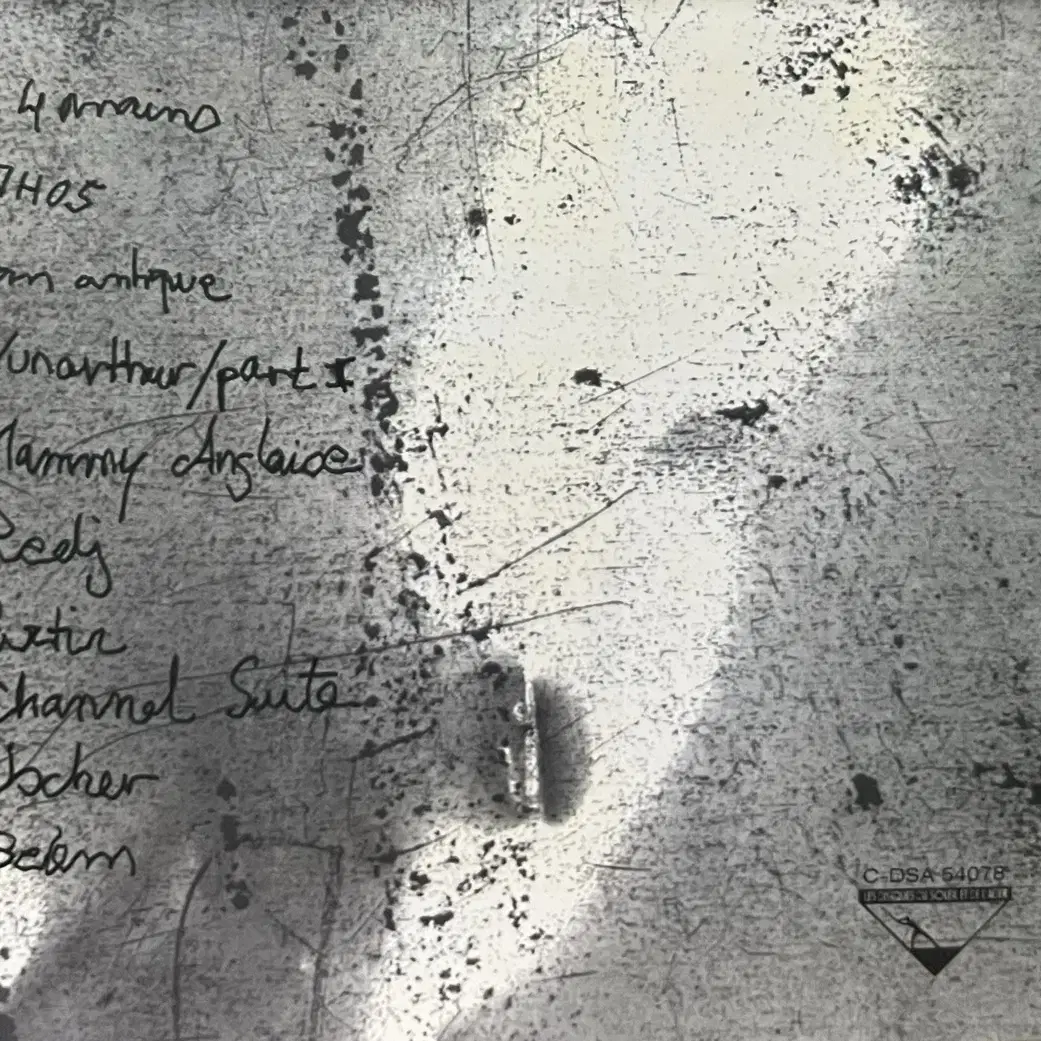 4 mains
7H05
antique
/unarthur/part I
Mammy Anglaise
Redj
Channel Suite
Ascher
Belém
C-DSA 54078